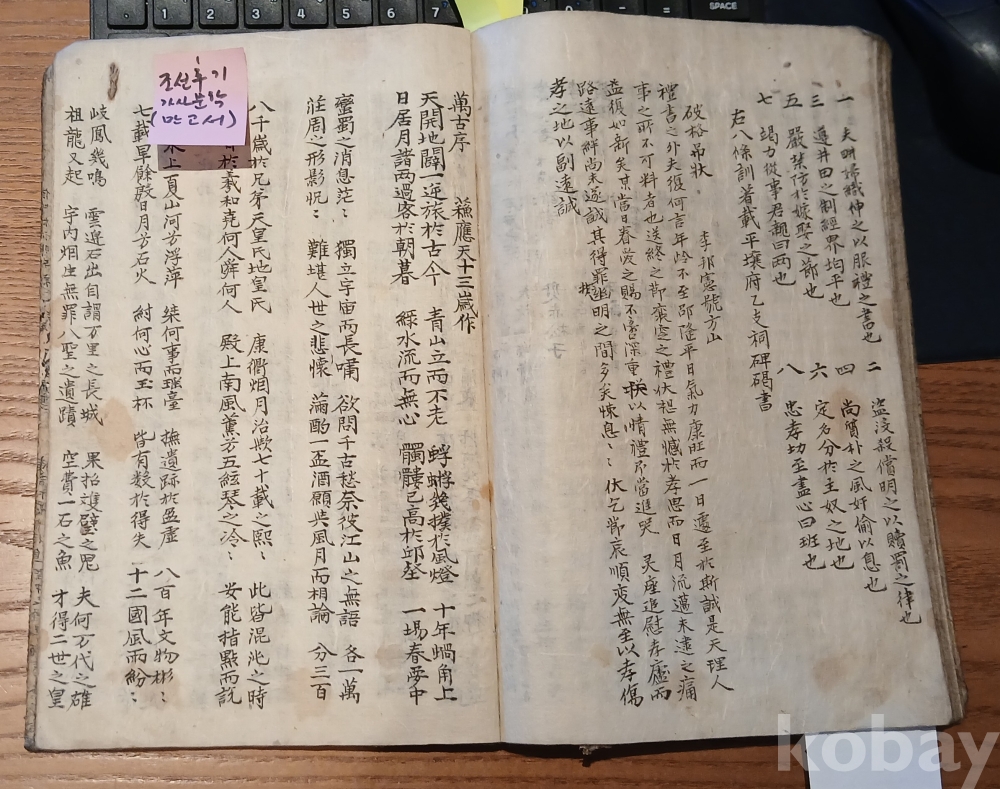 一 夫耕婦織伸之以服禮之書也 二 盜沒殺償明之以贖罰之律也
三 遵井田之制經界均平也 四 尚簡朴之風奸偷以息也
五 嚴禁防於嫁娶之節也 六 定名分於主奴之地也
七 竭力從事君親曰兩也 八 忠孝功至盡心曰班也
右八條訓著載平壤府乙支祠碑碣書
破格吊狀 李邦憲號方山
禮書之外夫復何言年岭不至卲隆平日氣力康旺而一日遽至於斯誠是天理人
事之所不可料者也送終之節窆之禮伏想無憾於孝思而日月流邁未逮之痛
益復如新矣某當日眷之賜不啻深重揆以情禮不當進哭 灵座追慰孝廬而
路遠事絆尚未遂誠其得罪幽明之間多矣悚息〻〻伏乞節哀順變無至以孝傷
孝之地以副遠誠
萬古序 蘓應天十三歲作
天開地闢一逆旅於古今 青山立而不老 蜉蝣幾撲於風燈 十年蝸角上
日居月諸兩過客於朝暮 綠水流而無心 髑髏已高於邱壑 一場春夢中
蠻蜀之消息茫〻 獨立宇宙而長嘯 欲問千古愁奈彼江山之無語 各一萬
莊周之形影怳〻 難堪人世之悲懷 滿酌一盃酒願與風月而相論 分三百
八千歲於兄弟天皇氏地皇氏 康衢烟月治歟七十載之熙〻 此皆混沌之時
於羲和堯何人舜何人 殿上南風薰兮五絃琴之冷〻 安能指點而說
水上一頁山河兮浮萍 桀何事而瑤臺 撫遺跡於盈虛 八百年文物彬〻
七載旱餘殷日月兮石火 紂何心而玉杯 皆有數於得失 十二國風雨紛〻
岐鳳幾鳴 雲邊石出自謂万里之長城 果招雙璧之鬼 夫何万代之雄
祖龍又起 宇內烟生無罪八聖之遺蹟 空費一石之魚 才得二世之皇
조선후기
가사문학
(만고서)
7 8 9 0 - =
SPACE
kobay